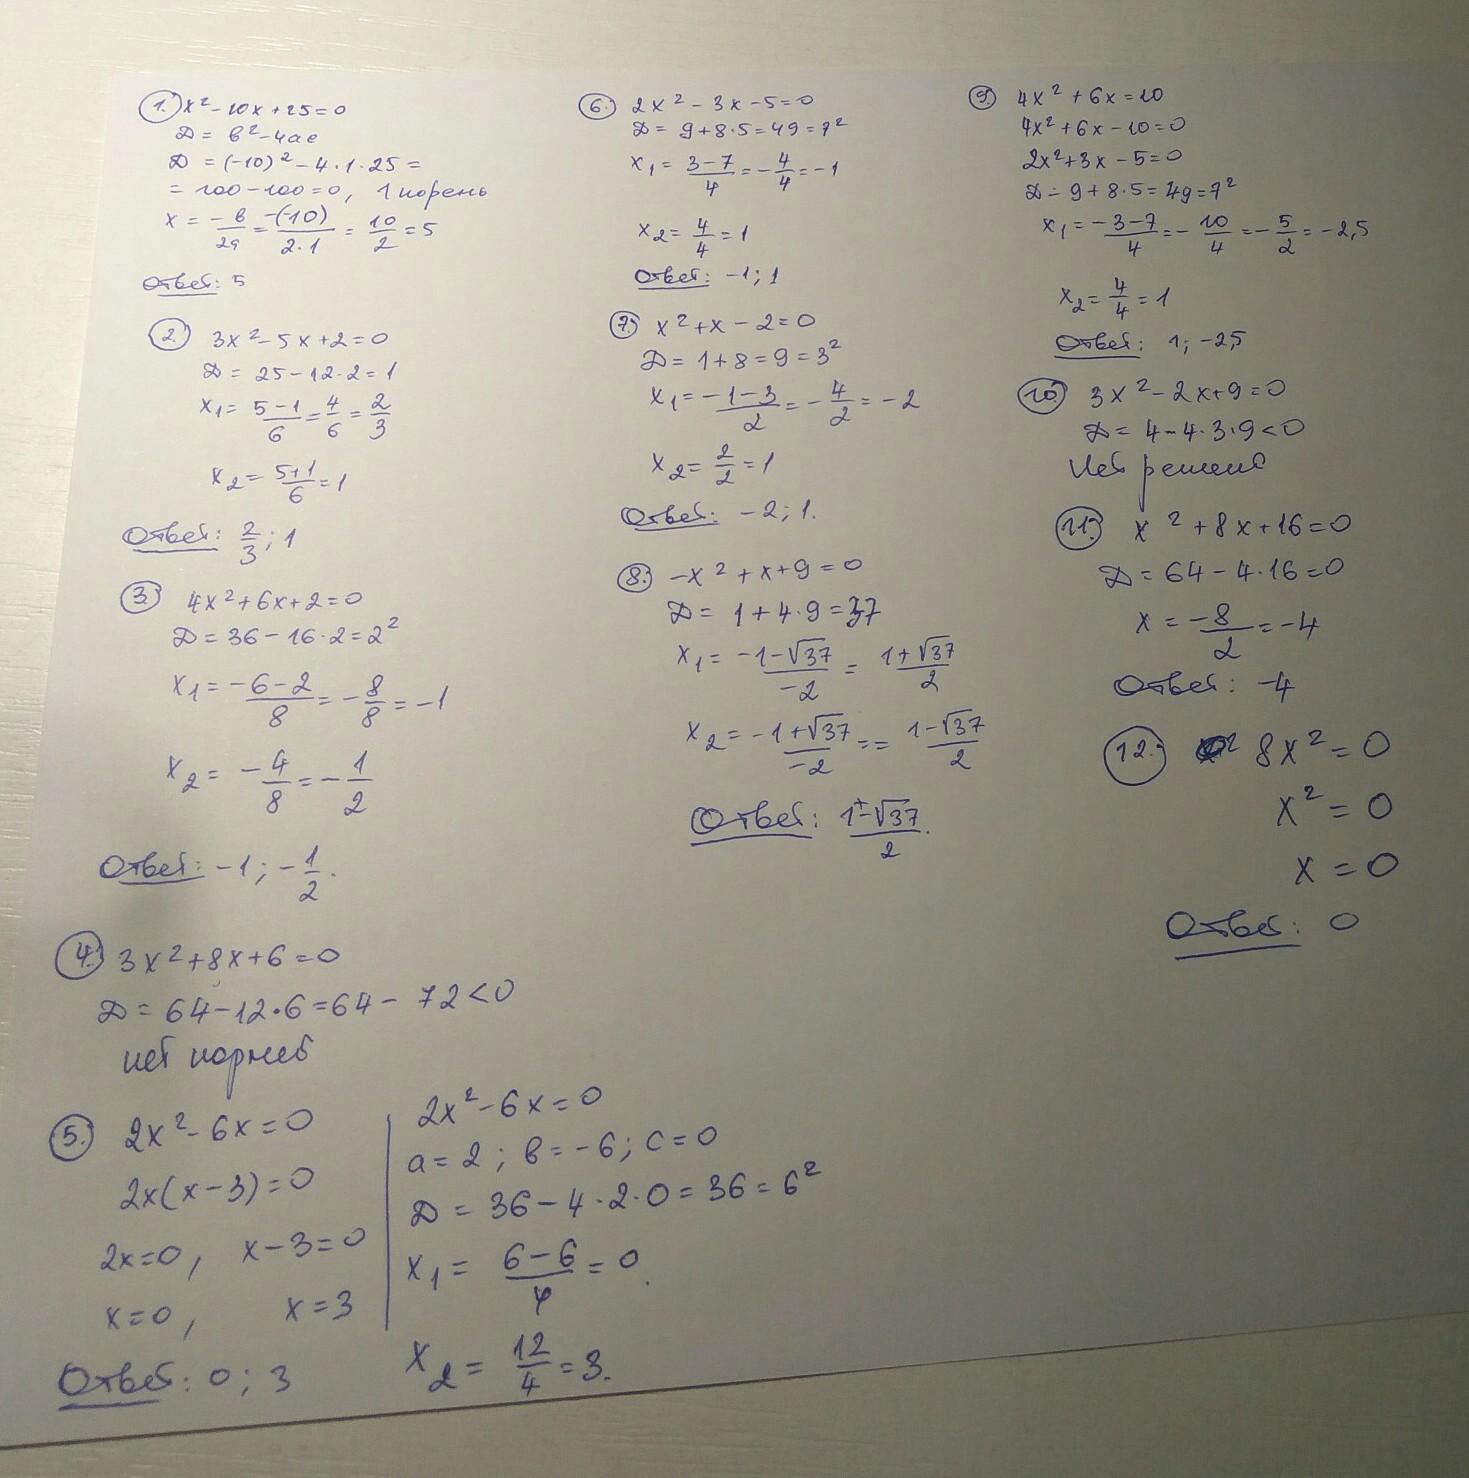 1. x² - 10x + 25 = 0
D = b² - 4ac
D = (-10)² - 4·1·25 =
= 100 - 100 = 0, 1 корень
x = -b/2a = -(-10)/2·1 = 10/2 = 5
Ответ: 5
2. 3x² - 5x + 2 = 0
D = 25 - 12·2 = 1
x₁ = 5-1/6 = 4/6 = 2/3
x₂ = 5+1/6 = 1
Ответ: 2/3; 1
3. 4x² + 6x + 2 = 0
D = 36 - 16·2 = 2²
x₁ = -6-2/8 = -8/8 = -1
x₂ = -4/8 = -1/2
Ответ: -1; -1/2.
4. 3x² + 8x + 6 = 0
D = 64 - 12·6 = 64 - 72 < 0
нет корней
5. 2x² - 6x = 0
2x(x - 3) = 0
2x = 0, x - 3 = 0
x = 0, x = 3
Ответ: 0; 3
2x² - 6x = 0
a = 2; b = -6; c = 0
D = 36 - 4·2·0 = 36 = 6²
x₁ = 6-6/4 = 0.
x₂ = 12/4 = 3.
6. 2x² - 3x - 5 = 0
D = 9 + 8·5 = 49 = 7²
x₁ = 3-7/4 = -4/4 = -1
x₂ = 4/4 = 1
Ответ: -1; 1
7. x² + x - 2 = 0
D = 1 + 8 = 9 = 3²
x₁ = -1-3/2 = -4/2 = -2
x₂ = 2/2 = 1
Ответ: -2; 1.
8. -x² + x + 9 = 0
D = 1 + 4·9 = 37
x₁ = -1-√37/-2 = 1+√37/2
x₂ = -1+√37/-2 = = 1-√37/2
Ответ: 1±√37/2.
9. 4x² + 6x = 10
4x² + 6x - 10 = 0
2x² + 3x - 5 = 0
D = 9 + 8·5 = 49 = 7²
x₁ = -3-7/4 = -10/4 = -5/2 = -2,5
x₂ = 4/4 = 1
Ответ: 1; -2,5
10. 3x² - 2x + 9 = 0
D = 4 - 4·3·9 < 0
Нет решений
11. x² + 8x + 16 = 0
D = 64 - 4·16 = 0
x = -8/2 = -4
Ответ: -4
12. 8x² = 0
x² = 0
x = 0
Ответ: 0